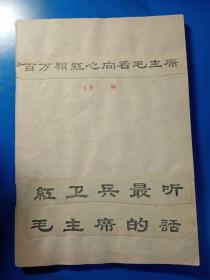 百万颗紅心向着毛主席
19 年
紅卫兵最听
毛主席的話